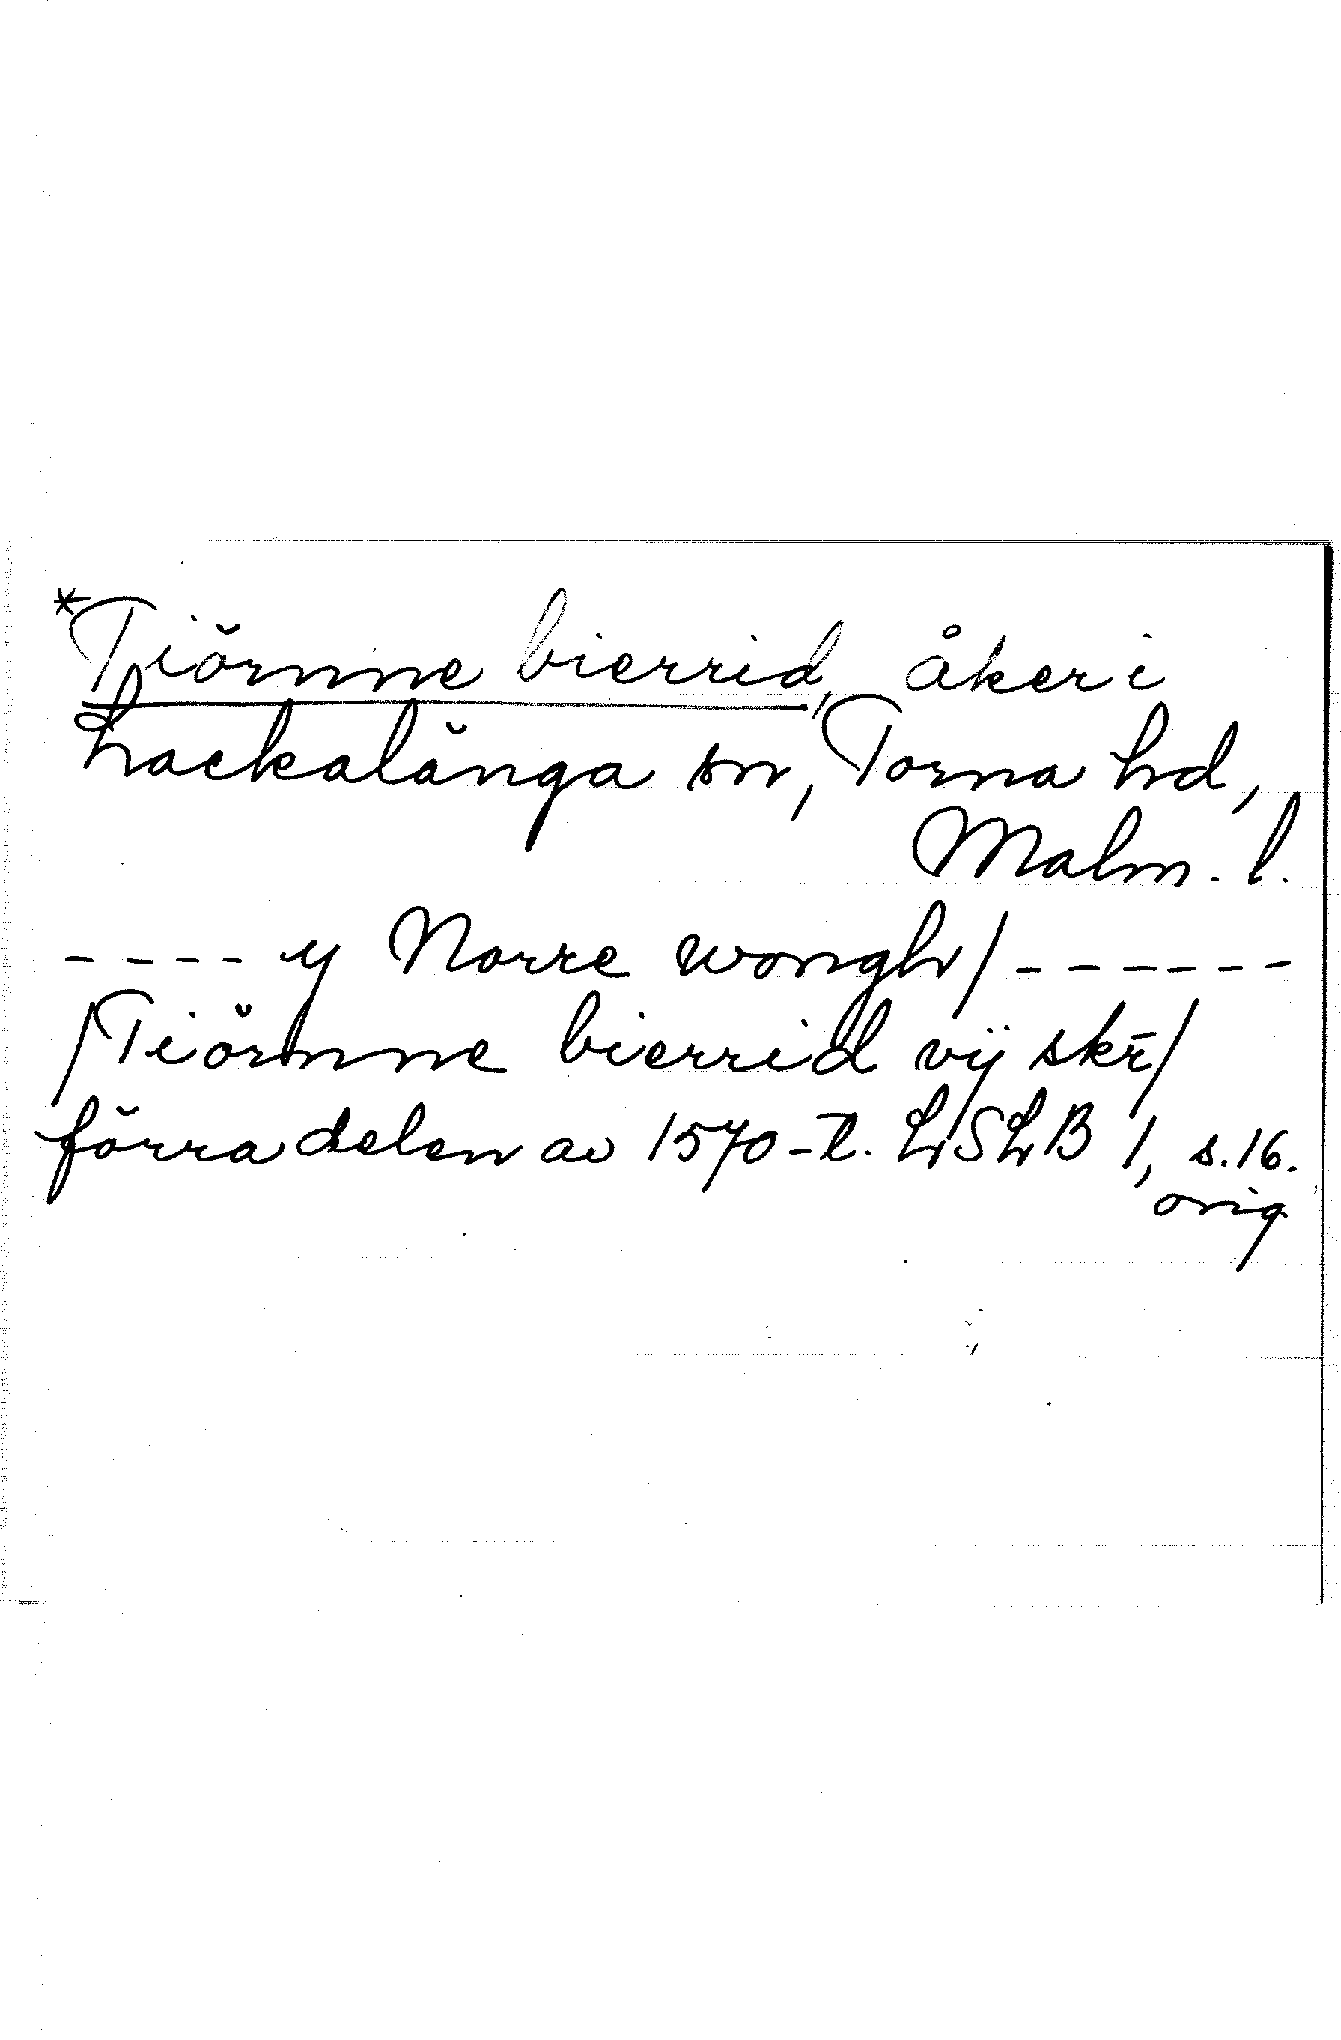 *Tiörnne bierrid, åker i
Hackalånga sn, Torna hd,
Malm. l.
---- y Norre wongh/------
/Tiörnne bierrid vij skr̄/
förra delen av 1570-t. LSLB 1, s.16.
orig